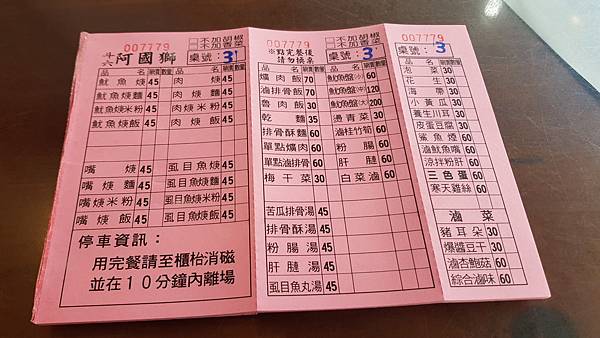 007779
□不加胡椒
□不加香菜
斗六 阿國獅 桌號: 3
品 名 單價 數量 品 名 單價 數量
魷魚焿 45 肉焿 45
魷魚焿麵 45 肉焿麵 45
魷魚焿米粉 45 肉焿米粉 45
魷魚焿飯 45 肉焿飯 45
嘴焿 45 虱目魚焿 45
嘴焿麵 45 虱目魚焿麵 45
嘴焿米粉 45 虱目魚焿米粉 45
嘴焿飯 45 虱目魚焿飯 45
停車資訊:
用完餐請至櫃枱消磁
並在10分鐘內離場
007779
□不加胡椒
□不加香菜
※點完餐後
請勿換桌
桌號: 3
品 名 單價 數量 品 名 單價 數量
爌肉飯 70 魷魚盤(小) 60
滷排骨飯 70 魷魚盤(中) 120
魯肉飯 30 魷魚盤(大) 200
乾麵 35 燙青菜 30
排骨酥麵 60 滷桂竹筍 60
單點爌肉 60 粉腸 60
單點滷排骨 60 肝膶 60
梅干菜 30 白菜滷 60
苦瓜排骨湯 45
排骨酥湯 45
粉腸湯 45
肝膶湯 45
虱目魚丸湯 45
007779
桌號: 3
品 名 單價 數量
泡菜 30
花生 30
海帶 30
小黃瓜 30
養生川耳 30
皮蛋豆腐 30
鯊魚煙 60
滷魷魚嘴 60
涼拌粉肝 60
三色蛋 60
寒天雞絲 60
滷菜
豬耳朵 30
爆醬豆干 30
滷杏鮑菇 60
綜合滷味 60